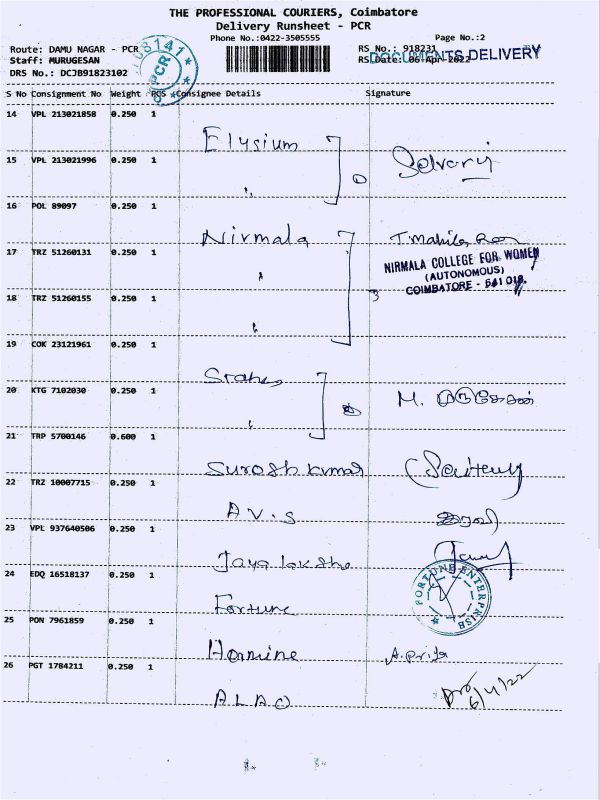 THE PROFESSIONAL COURIERS, Coimbatore
Delivery Runsheet - PCR
Phone No.:0422-3505555 Page No.:2
Route: DAMU NAGAR - PCR RS No.: 918231
Staff: MURUGESAN RS Date: 06-Apr-2022 DOCUMENTS DELIVERY
DRS No.: DCJB91823102
PCR
S No Consignment No Weight PCS Consignee Details Signature
14 VPL 213021858 0.250 1
Elysium
15 VPL 213021996 0.250 1
Selvaraj
16 POL 89097 0.250 1
Nirmala
17 TRZ 51260131 0.250 1
NIRMALA COLLEGE FOR WOMEN
(AUTONOMOUS)
COIMBATORE - 641 018.
18 TRZ 51260155 0.250 1
19 COK 23121961 0.250 1
20 KTG 7102030 0.250 1
M. முருகேசன்
21 TRP 5700146 0.600 1
Suresh Kumar
22 TRZ 10007715 0.250 1
A V. S
23 VPL 937640506 0.250 1
24 EDQ 16518137 0.250 1
Fortune
FORTUNE ENTERPRISE
25 PON 7961859 0.250 1
A. Priya
26 PGT 1784211 0.250 1
6/4/22